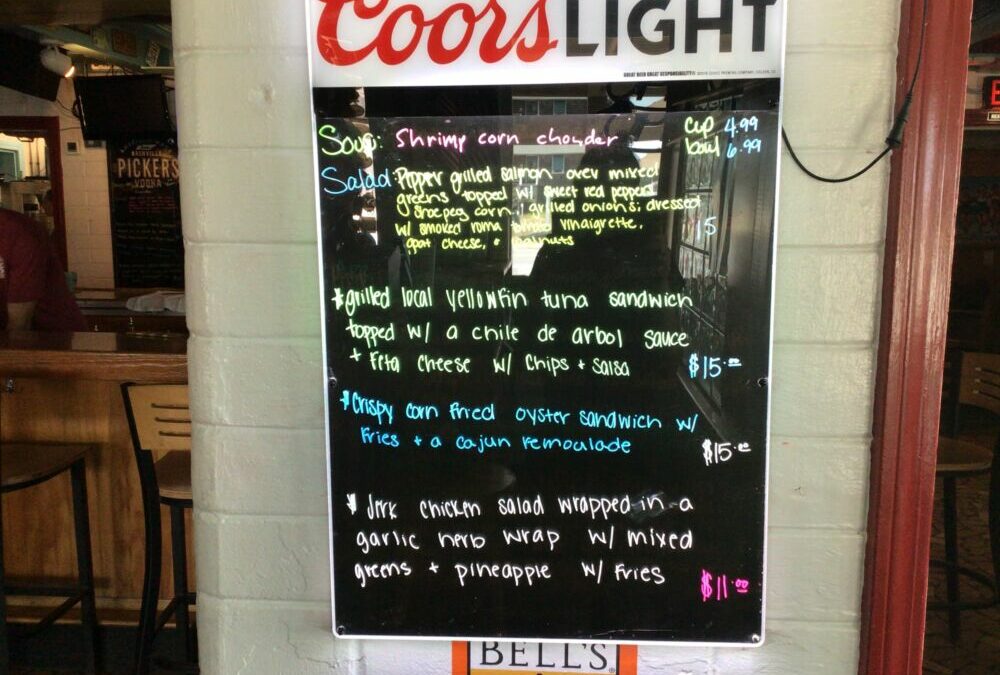 Coors LIGHT
GREAT BEER GREAT RESPONSIBILITY
Soup: Shrimp corn chowder cup 4.99
bowl 6.99
Salad: Pepper grilled salmon over mixed
greens topped w/ sweet red peppers,
shoepeg corn, grilled onions; dressed
w/ smoked roma tomato vinaigrette,
goat cheese, + walnuts 15
*grilled local yellowfin tuna sandwich
topped w/ a chile de arbol sauce
+ feta cheese w/ chips + salsa $15.00
*Crispy corn fried oyster sandwich w/
fries + a cajun remoulade $15.00
* Jerk chicken salad wrapped in a
garlic herb wrap w/ mixed
greens + pineapple w/ fries $11.00
BELL'S
NASHVILLE
PICKERS
VODKA